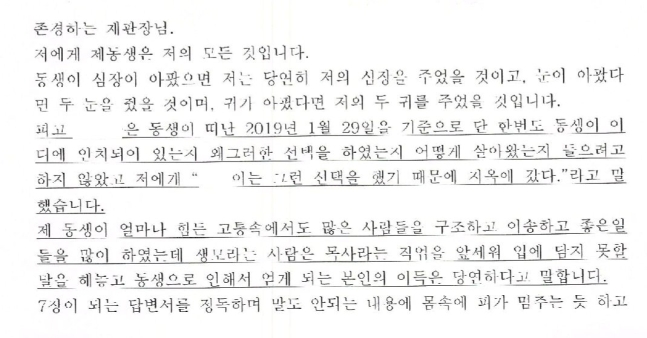 존경하는 재판장님.
저에게 제동생은 저의 모든 것입니다.
동생이 심장이 아팠으면 저는 당연히 저의 심장을 주었을 것이고, 눈이 아팠다
면 두 눈을 줬을 것이며, 귀가 아팠다면 저의 두 귀를 주었을 것입니다.
피고 은 동생이 떠난 2019년 1월 29일을 기준으로 단 한번도 동생이 어
디에 안치되어 있는지 왜그러한 선택을 하였는지 어떻게 살아왔는지 들으려고
하지 않았고 저에게 “ 이는 그런 선택을 했기 때문에 지옥에 갔다.”라고 말
했습니다.
제 동생이 얼마나 힘든 고통속에서도 많은 사람들을 구조하고 이송하고 좋은일
들을 많이 하였는데 생모라는 사람은 목사라는 직업을 앞세워 입에 담지 못할
말을 해놓고 동생으로 인해서 얻게 되는 본인의 이득은 당연하다고 말합니다.
7장이 되는 답변서를 정독하며 말도 안되는 내용에 몸속에 피가 멈추는 듯 하고